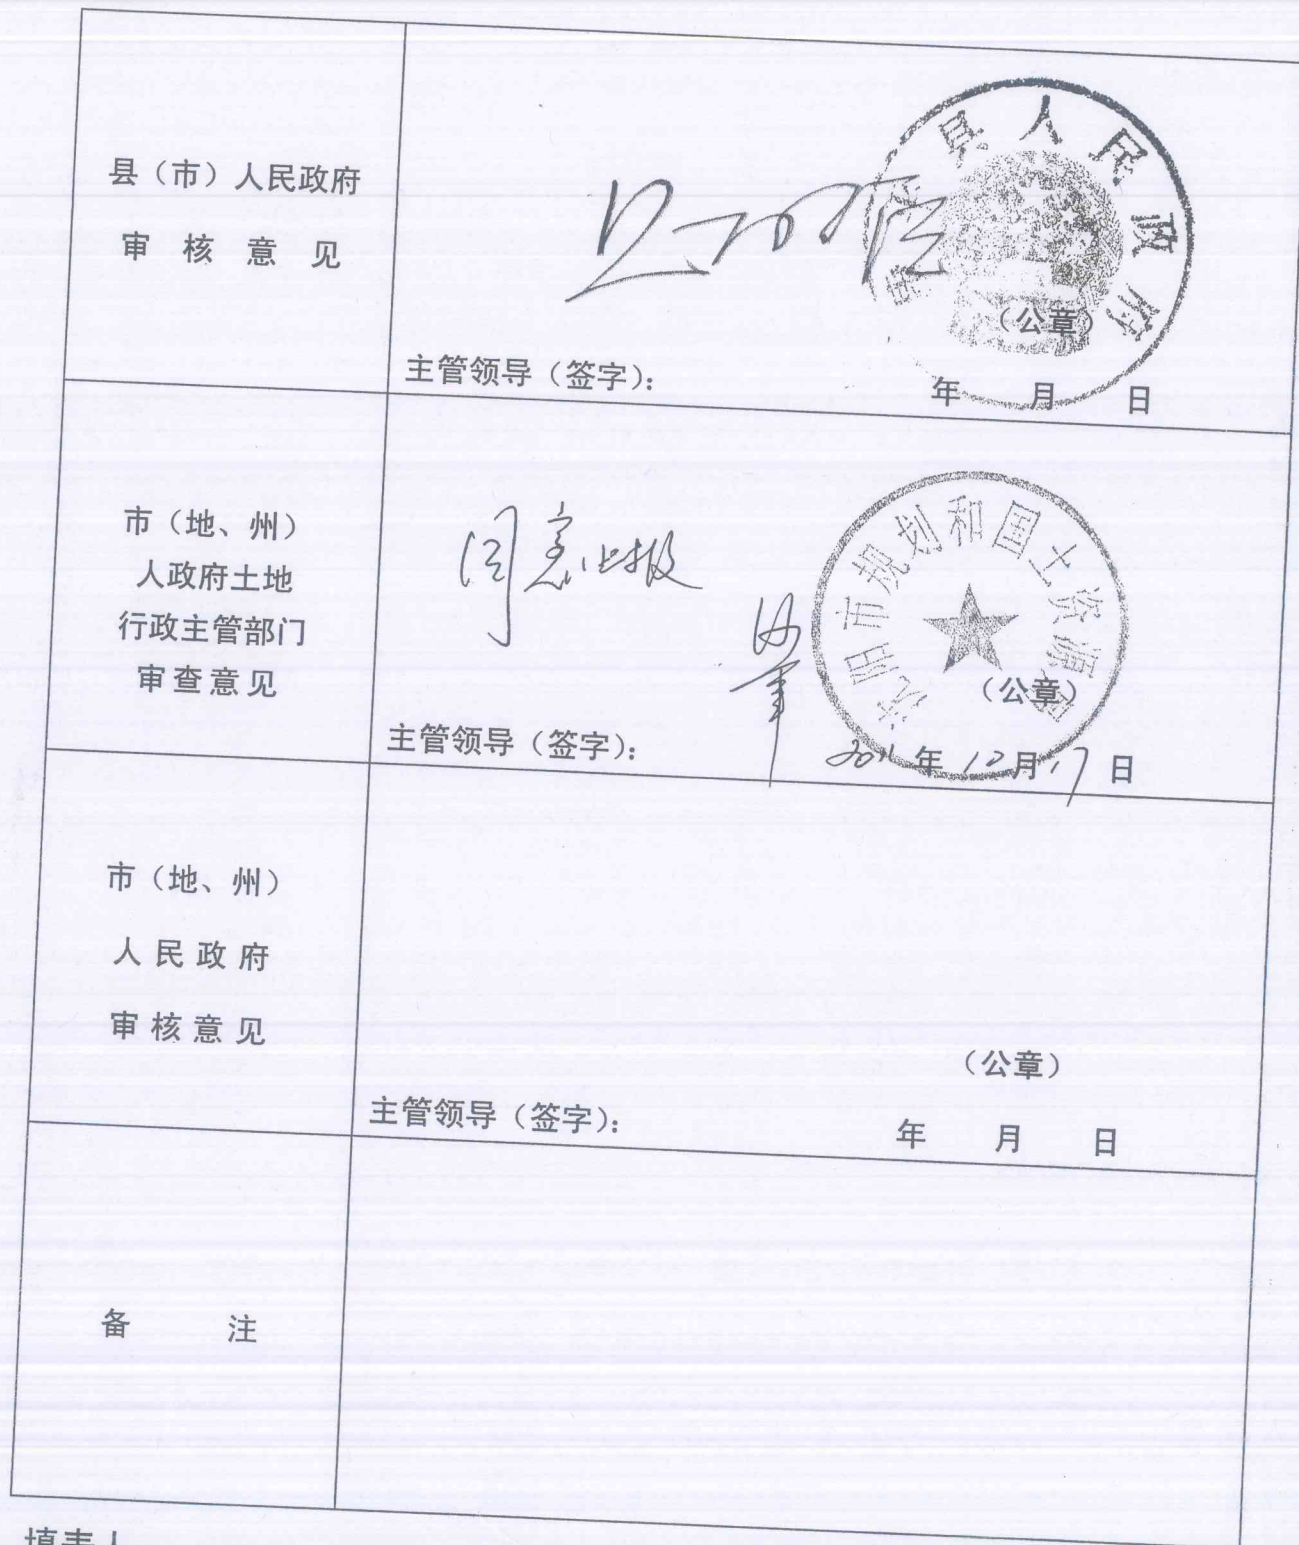 县（市）人民政府
审核意见
县人民政府
（公章）
主管领导（签字）：
年 月 日
市（地、州）
人政府土地
行政主管部门
审查意见
同意上报
沈阳市规划和国土资源局
（公章）
主管领导（签字）：
年12月17日
市（地、州）
人民政府
审核意见
（公章）
主管领导（签字）：
年 月 日
备 注
填表人